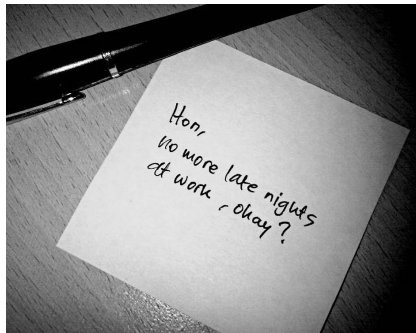 Hon,
no more late nights
at work, okay?